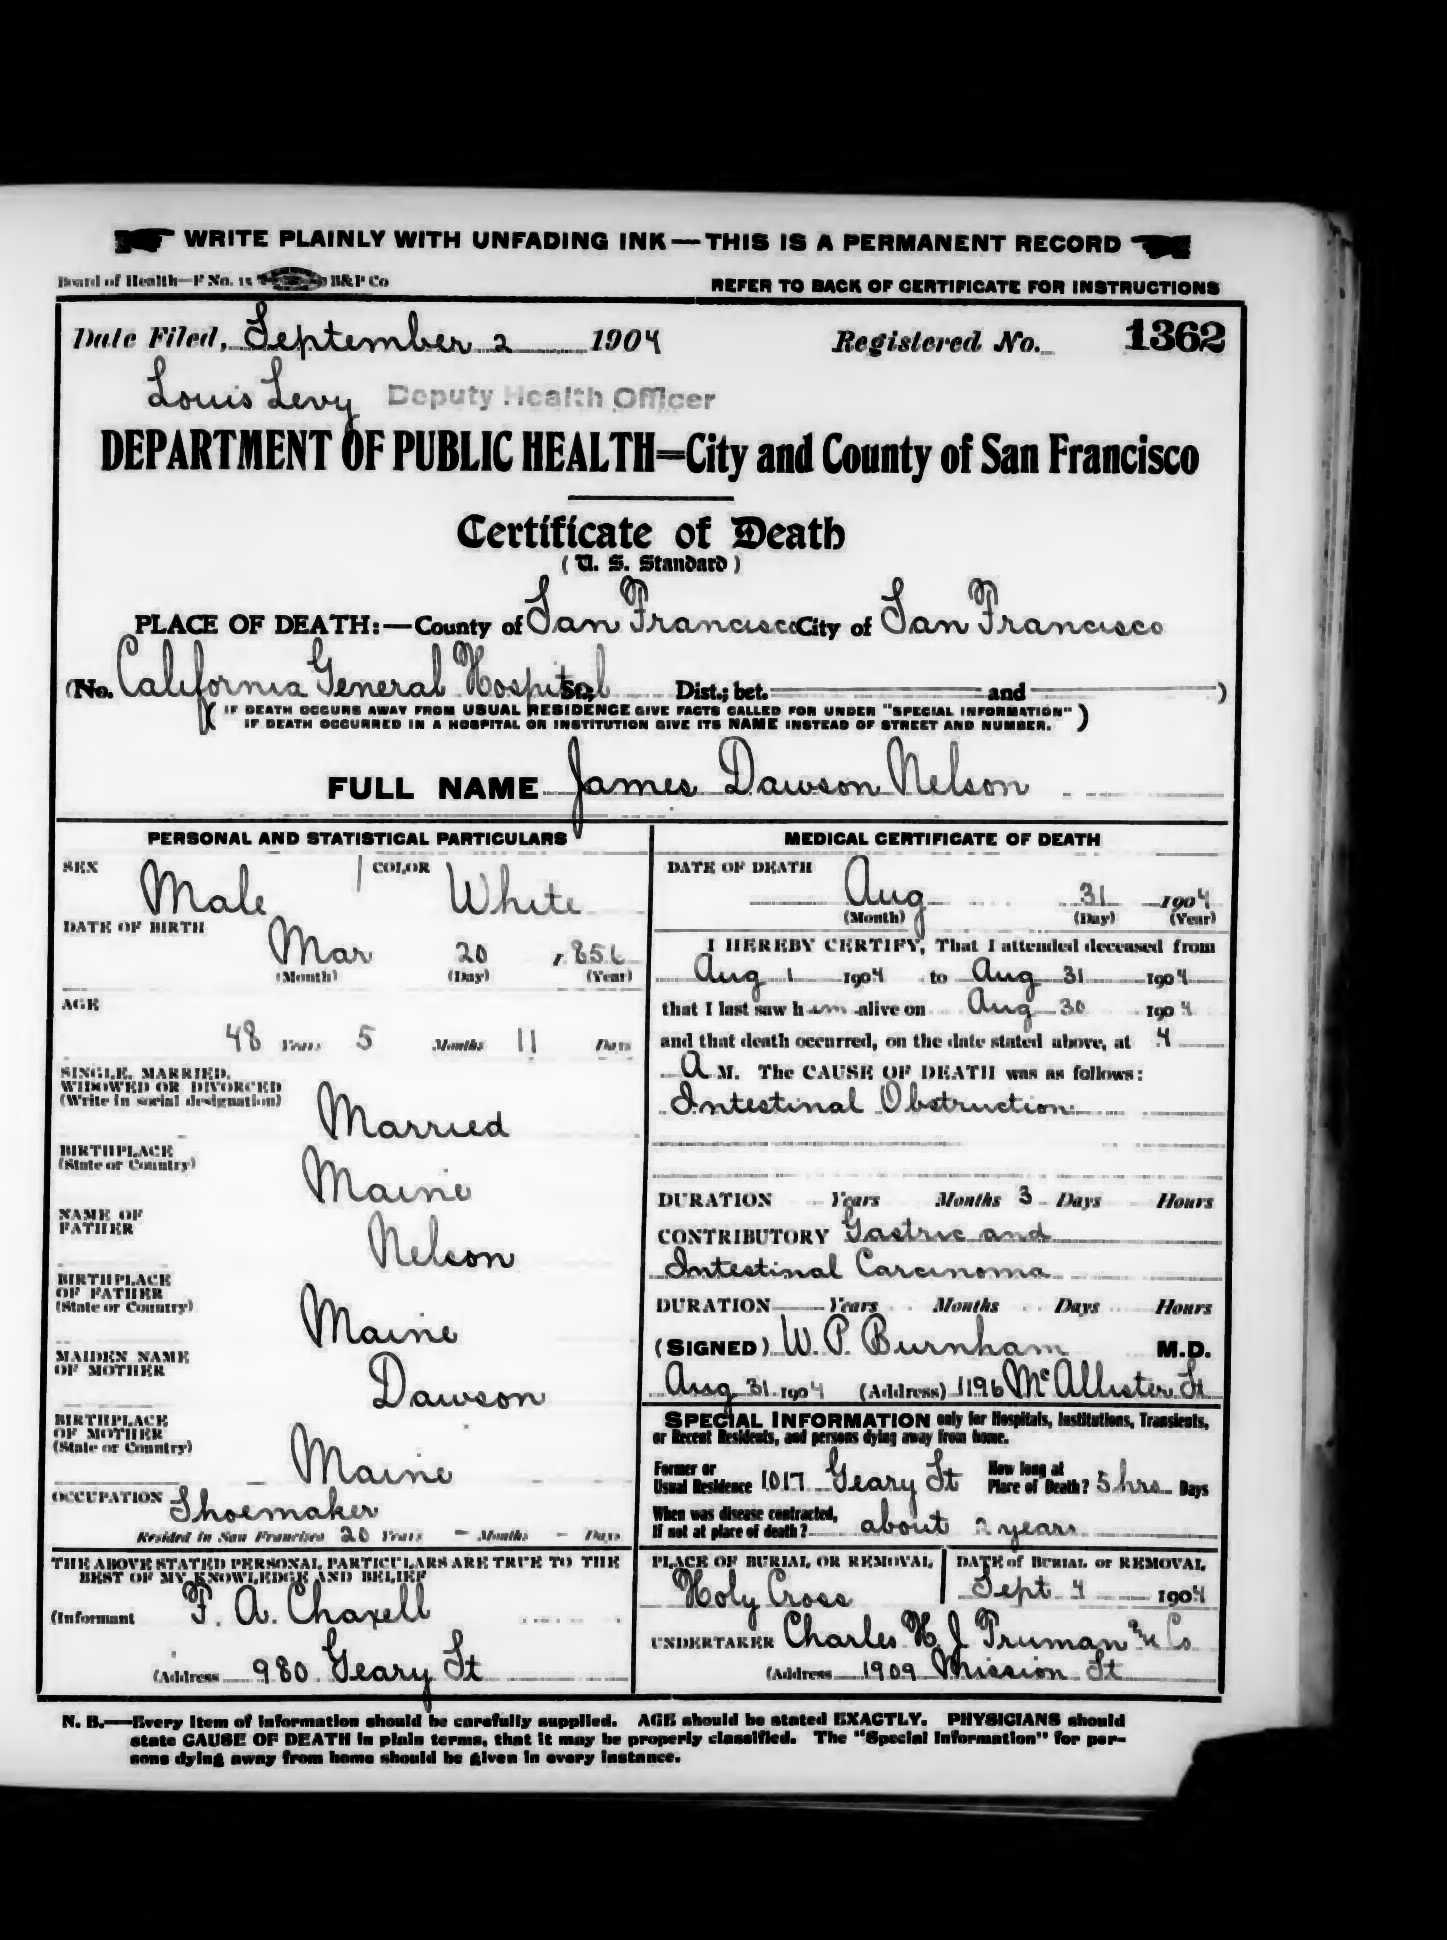 WRITE PLAINLY WITH UNFADING INK—THIS IS A PERMANENT RECORD
Board of Health—F No. 15 B&P Co
REFER TO BACK OF CERTIFICATE FOR INSTRUCTIONS
Date Filed, September 2 1904 Registered No. 1362
Louis Levy Deputy Health Officer
DEPARTMENT OF PUBLIC HEALTH—City and County of San Francisco
Certificate of Death
(U. S. Standard)
PLACE OF DEATH:—County of San Francisco City of San Francisco
(No. California General Hospital St., Dist.; bet. and )
( IF DEATH OCCURS AWAY FROM USUAL RESIDENCE GIVE FACTS CALLED FOR UNDER "SPECIAL INFORMATION" )
IF DEATH OCCURRED IN A HOSPITAL OR INSTITUTION GIVE ITS NAME INSTEAD OF STREET AND NUMBER.
FULL NAME James Dawson Nelson
PERSONAL AND STATISTICAL PARTICULARS
SEX Male COLOR White
DATE OF BIRTH
Mar 20 1856
(Month) (Day) (Year)
AGE
48 Years 5 Months 11 Days
SINGLE, MARRIED,
WIDOWED OR DIVORCED
(Write in social designation)
Married
BIRTHPLACE
(State or Country)
Maine
NAME OF
FATHER
Nelson
BIRTHPLACE
OF FATHER
(State or Country)
Maine
MAIDEN NAME
OF MOTHER
Dawson
BIRTHPLACE
OF MOTHER
(State or Country)
Maine
OCCUPATION Shoemaker
Resided in San Francisco 20 Years - Months - Days
THE ABOVE STATED PERSONAL PARTICULARS ARE TRUE TO THE
BEST OF MY KNOWLEDGE AND BELIEF
(Informant F. A. Chaxell
(Address 980 Geary St
MEDICAL CERTIFICATE OF DEATH
DATE OF DEATH
Aug 31 1904
(Month) (Day) (Year)
I HEREBY CERTIFY, That I attended deceased from
Aug 1 1904 to Aug 31 1904
that I last saw him alive on Aug 30 1904
and that death occurred, on the date stated above, at 4
A M. The CAUSE OF DEATH was as follows:
Intestinal Obstruction
DURATION Years Months 3 Days Hours
CONTRIBUTORY Gastric and
Intestinal Carcinoma
DURATION Years Months Days Hours
(SIGNED) W. P. Burnham M.D.
Aug 31 1904 (Address) 1196 McAllister St
SPECIAL INFORMATION only for Hospitals, Institutions, Transients,
or Recent Residents, and persons dying away from home.
Former or
Usual Residence 1017 Geary St How long at
Place of Death? 5 hrs Days
When was disease contracted,
If not at place of death? about 2 years
PLACE OF BURIAL OR REMOVAL
Holy Cross
DATE of BURIAL or REMOVAL
Sept 4 1904
UNDERTAKER Charles H. J. Truman & Co
(Address 1909 Mission St
N. B.—Every item of information should be carefully supplied. AGE should be stated EXACTLY. PHYSICIANS should
state CAUSE OF DEATH in plain terms, that it may be properly classified. The "Special Information" for per-
sons dying away from home should be given in every instance.